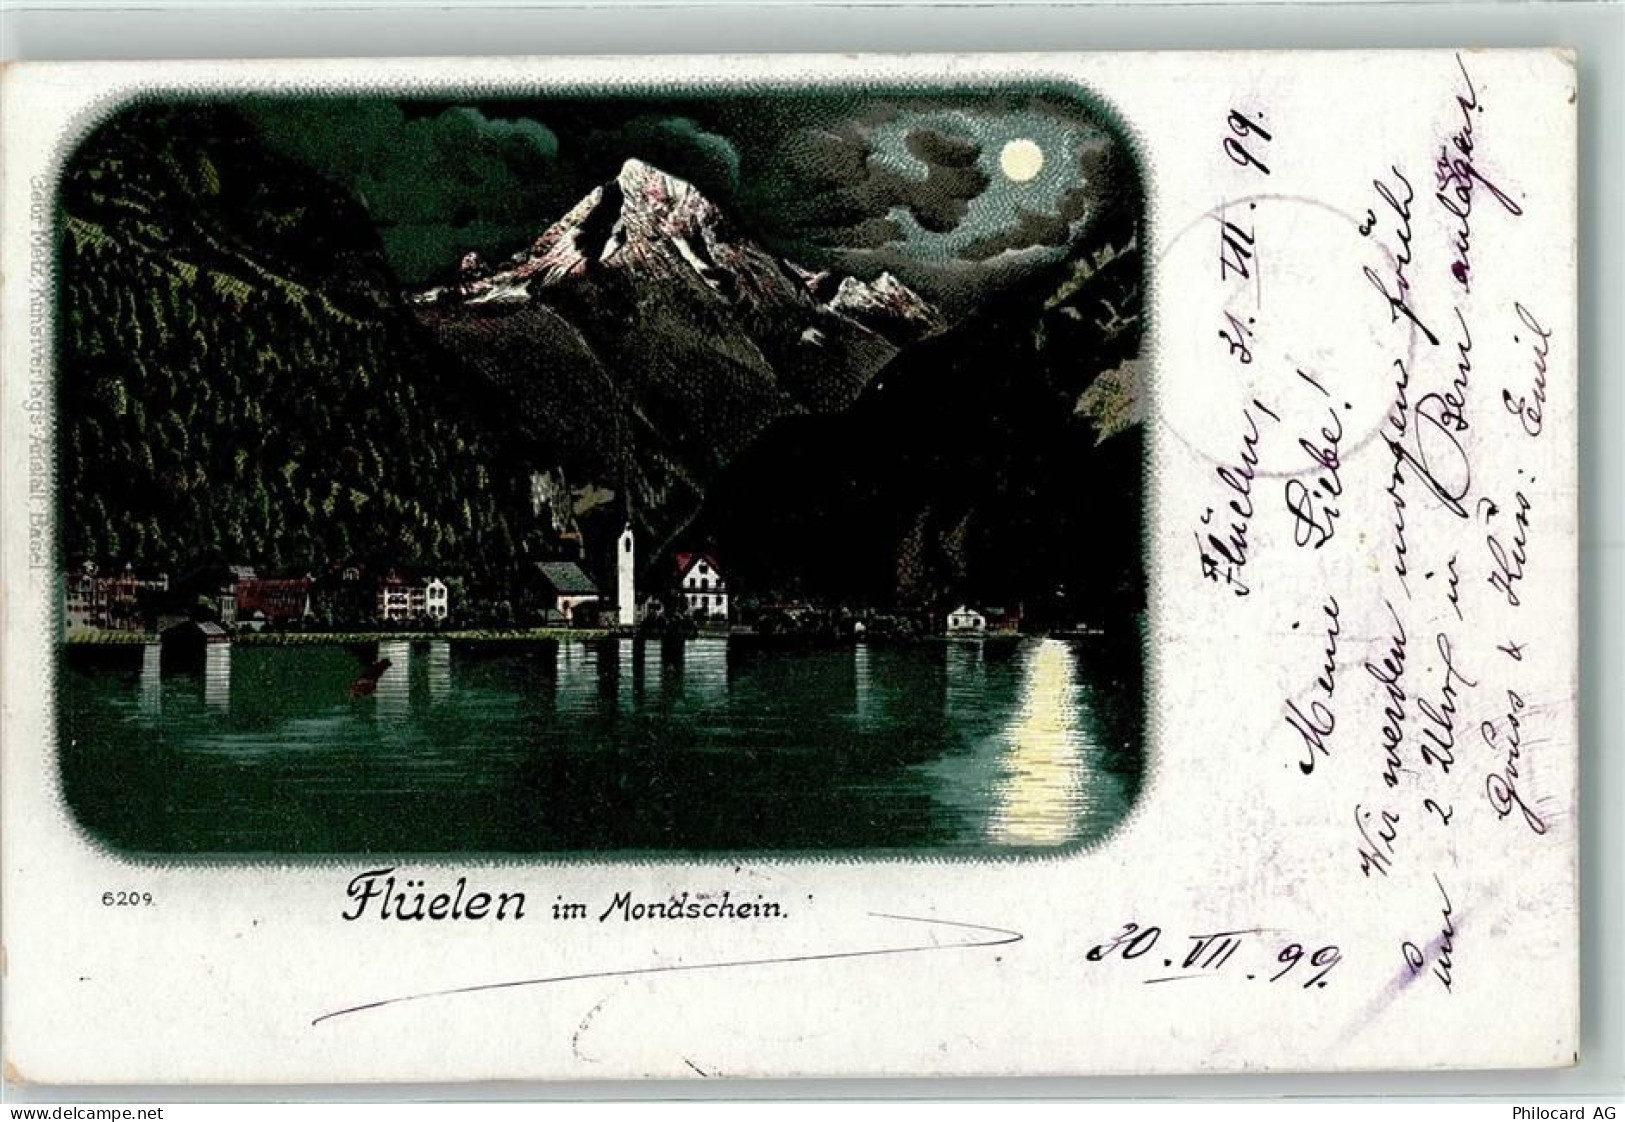 6209.
Flüelen im Mondschein.
Kunstverlags-Anstalt Basel.
Flüelen, 31. VII. 99.
Meine Liebe!
Wir werden morgen früh
um 2 Uhr in Bern anlagen.
Gruss & Kuss: Emil
30. VII. 99.
www.delcampe.net
Philocard AG